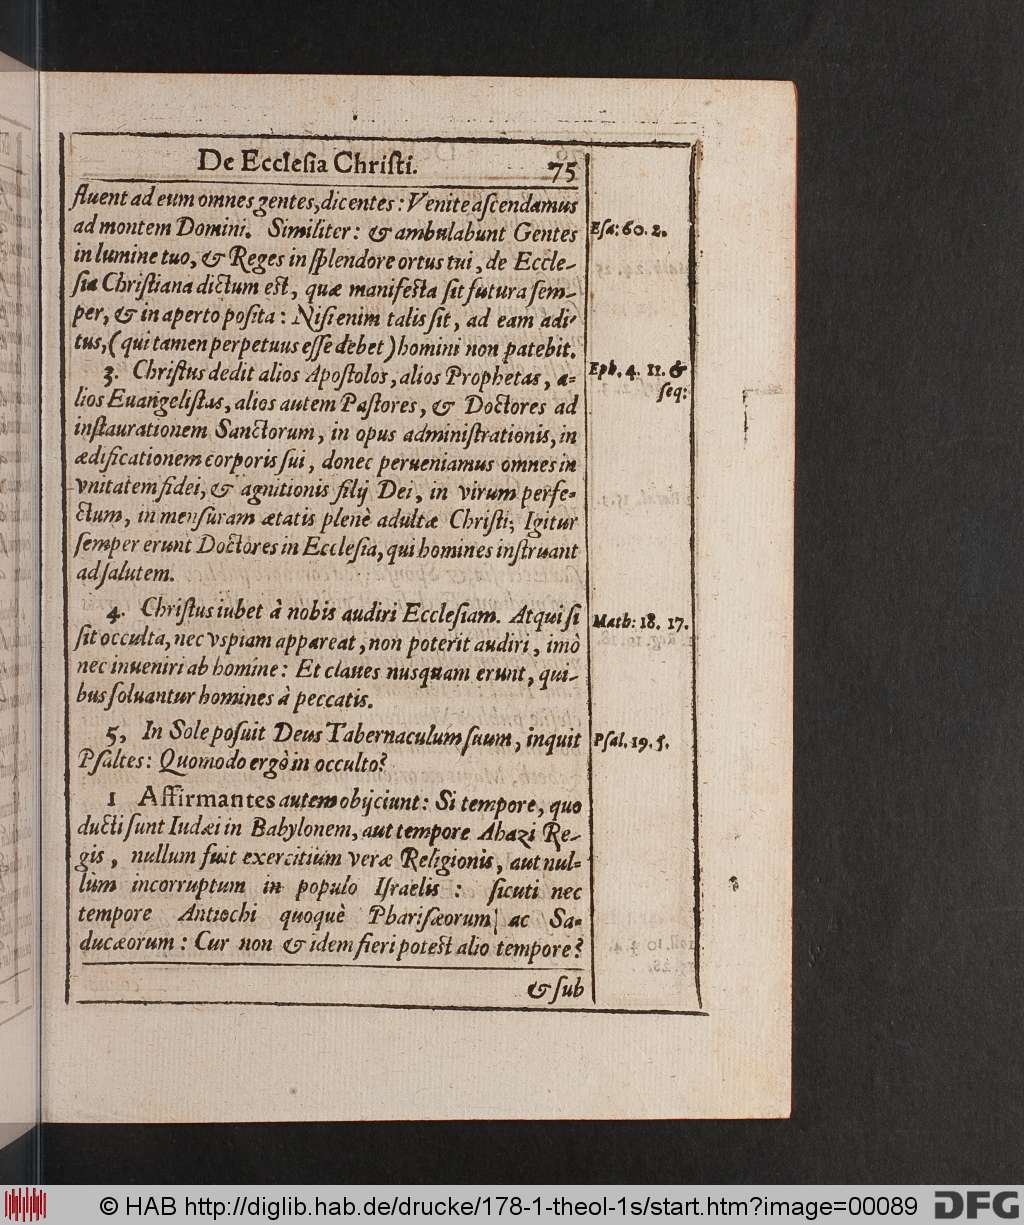 De Eccleſia Chriſti. 75
fluent ad eum omnes gentes, dicentes : Venite aſcendamus
ad montem Domini. Similiter : & ambulabunt Gentes
Eſa: 60. 2.
in lumine tuo, & Reges in ſplendore ortus tui, de Eccle-
ſia Chriſtiana dictum eſt, quæ manifeſta ſit futura ſem-
per, & in aperto poſita : Niſi enim talis ſit, ad eam adi-
tus, ( qui tamen perpetuus eſſe debet ) homini non patebit.
3. Chriſtus dedit alios Apoſtolos, alios Prophetas, a-
Eph. 4. 11. &
ſeq:
lios Euangeliſtas, alios autem Paſtores, & Doctores ad
inſtaurationem Sanctorum, in opus adminiſtrationis, in
ædificationem corporis ſui, donec perueniamus omnes in
vnitatem fidei, & agnitionis filij Dei, in virum perfe-
ctum, in menſuram ætatis plenè adultæ Chriſti; Igitur
ſemper erunt Doctores in Eccleſia, qui homines inſtruant
ad ſalutem.
4. Chriſtus iubet à nobis audiri Eccleſiam. Atqui ſi
Math: 18. 17.
ſit occulta, nec vſpiam appareat, non poterit audiri, imò
nec inueniri ab homine : Et claues nusquam erunt, qui-
bus ſoluantur homines à peccatis.
5, In Sole poſuit Deus Tabernaculum ſuum, inquit
Pſal. 19. 5.
Pſaltes : Quomodo ergò in occulto?
1 Affirmantes autem obijciunt : Si tempore, quo
ducti ſunt Iudæi in Babylonem, aut tempore Ahazi Re-
gis, nullum fuit exercitium veræ Religionis, aut nul-
lùm incorruptum in populo Iſraelis : ſicuti nec
tempore Antiochi quoquè Phariſæorum ac Sa-
ducæorum : Cur non & idem fieri poteſt alio tempore?
& ſub
© HAB http://diglib.hab.de/drucke/178-1-theol-1s/start.htm?image=00089
DFG